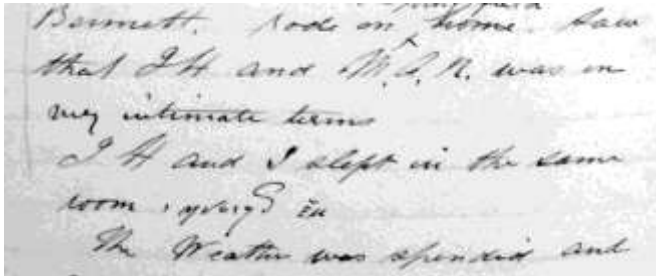 Bennett. Rode on home. Saw
that I H and M. A. N. was in
very intimate terms
I H and I slept in the same
room
The Weather was spendid and